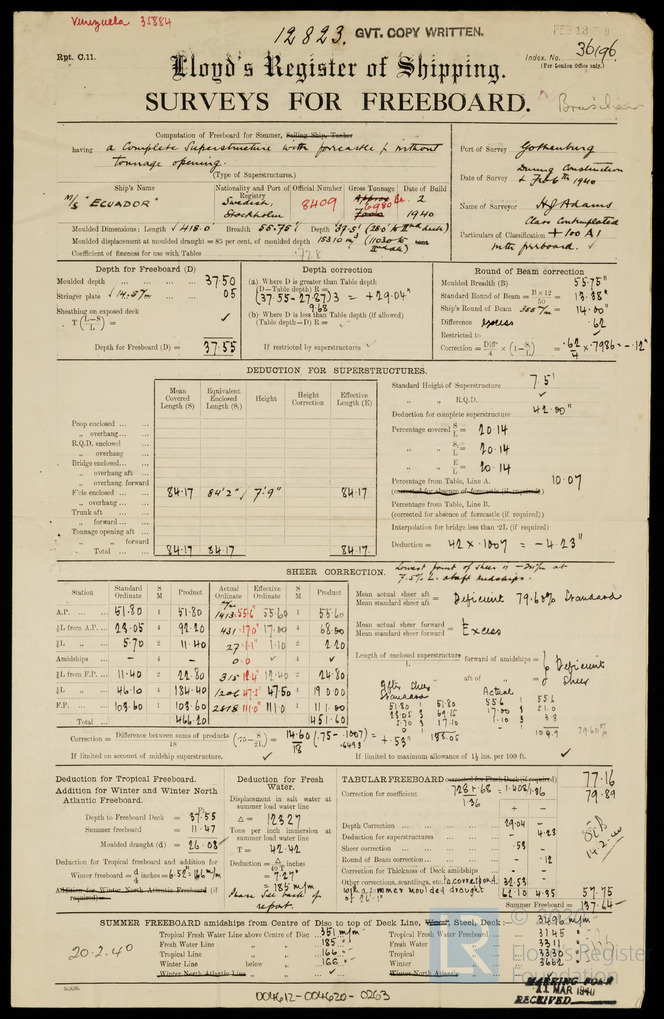 Venezuela 35884
12823. GVT. COPY WRITTEN.
Rpt. C.11.
Index. No. 36196
(For London Office only.)
Lloyd's Register of Shipping.
SURVEYS FOR FREEBOARD.
Computation of Freeboard for Steamer, Sailing Ship, Tanker
having a Complete Superstructure with forecastle & without
tonnage opening.
(Type of Superstructures.)
Port of Survey Gothenburg
Date of Survey During Construction
& Feb 6th 1940
Name of Surveyor H J Adams
Class Contemplated
Particulars of Classification + 100 A1
with freeboard.
Ship's Name
M/S "ECUADOR"
Nationality and Port of Registry
Swedish,
Stockholm
Official Number
8409
Gross Tonnage
Approx
6980
Date of Build
2
1940
Moulded Dimensions: Length 418.0' Breadth 55.75' Depth 37.5' (28.0' to IInd deck)
Moulded displacement at moulded draught = 85 per cent. of moulded depth 15310 m³ (11030 to IInd dk)
Coefficient of fineness for use with Tables .728
Depth for Freeboard (D)
Moulded depth 37.50
Stringer plate 14.5 m/m .05
Sheathing on exposed deck
T (L-S / L) = ✓
Depth for Freeboard (D) = 37.55
Depth correction
(a) Where D is greater than Table depth
(D-Table depth) R =
(37.55-27.87) 3 = +29.04"
9.68
(b) Where D is less than Table depth (if allowed)
(Table depth-D) R =
If restricted by superstructures
Round of Beam correction
Moulded Breadth (B) 55.75"
Standard Round of Beam = B×12 / 50 = 13.38"
Ship's Round of Beam 355 m/m = 14.00"
Difference excess .62
Restricted to ✓
Correction = Diff.e / 4 × (1 - S₁ / L) = .62 / 4 × .7986 = -.12"
DEDUCTION FOR SUPERSTRUCTURES.
Mean Covered Length (S)
Equivalent Enclosed Length (S₁)
Height
Height Correction
Effective Length (E)
Poop enclosed
„ overhang
R.Q.D. enclosed
„ overhang
Bridge enclosed
„ overhang aft
„ overhang forward
F'cle enclosed 84.17 84'2" 7'9" 84.17
„ overhang
Trunk aft
„ forward
Tonnage opening aft
„ „ forward
Total 84.17 84.17 84.17
Standard Height of Superstructure 7.5'
„ „ R.Q.D. ✓
Deduction for complete superstructure 42.00"
Percentage covered S / L = 20.14
„ „ S₁ / L = 20.14
„ „ E / L = 20.14
Percentage from Table, Line A. 10.07
(corrected for absence of forecastle (if required))
Percentage from Table, Line B.
(corrected for absence of forecastle (if required))
Interpolation for bridge less than .2L (if required)
Deduction = 42 × .1007 = -4.23"
SHEER CORRECTION.
Station
Standard Ordinate
S M
Product
Actual Ordinate
Effective Ordinate
S M
Product
A.P. 51.80 1 51.80 1413 55.6" 55.60 1 55.60
⅙L from A.P. 23.05 4 92.20 431 17.0" 17.00 4 68.00
⅓L „ 5.70 2 11.40 27 1.1" 1.10 2 2.20
Amidships - 4 - 0.0 ✓ 4 ✓
⅓L from F.P. 11.40 2 22.80 315 12.4" 12.40 2 24.80
⅙L „ 46.10 4 184.40 1206 47.5" 47.50 4 190.00
F.P. 103.60 1 103.60 2818 111.0" 111.0 1 111.00
Total 466.20 451.60
Lowest point of sheer is -20 m/m at
7.5% L. abaft midships.
Mean actual sheer aft
Mean standard sheer aft = Deficient 79.60% Standard
Mean actual sheer forward
Mean standard sheer forward = Excess
Length of enclosed superstructure / L forward of amidships =
„ aft of „ =
Deficient
Sheer
After Sheer
Standard
51.80 1 51.80
23.05 3 69.15
5.70 3 17.10
0 1
138.05
Actual
55.6 1 55.6
17.00 3 51.0
1.10 3 3.3
109.9
79.60%
Correction = Difference between sums of products / 18 (.75 - S / 2L) = 14.60 / 18 (.75 - .1007) = +.53"
.6493
If limited on account of midship superstructure. ✓
If limited to maximum allowance of 1½ ins. per 100 ft. ✓
Deduction for Tropical Freeboard.
Addition for Winter and Winter North
Atlantic Freeboard.
Ft.
Depth to Freeboard Deck = 37.55
Summer freeboard = 11.47
Moulded draught (d) = 26.08
Deduction for Tropical freeboard and addition for
Winter freeboard = d / 4 inches = 6.52" = 166 m/m
Addition for Winter North Atlantic Freeboard (if
required) =
Deduction for Fresh
Water.
Displacement in salt water at
summer load water line
Δ = 12327
Tons per inch immersion at
summer load water line
T = 42.42
Deduction = Δ / 40 T inches
= 7.27"
= 185 m/m
Please see back of
report.
TABULAR FREEBOARD corrected for Flush Deck (if required) 77.16
Correction for coefficient .728 + .68 / 1.36 = 1.408/1.36 79.89
+ -
Depth Correction 29.04
Deduction for superstructures 4.23
Sheer correction .53
Round of Beam correction .12
Correction for Thickness of Deck amidships -
Other corrections, scantlings, etc. to correspond 32.53
with a summer moulded draught
of 26'1"
62.10 4.35 57.75
Summer Freeboard = 137.64
14.2.40
SUMMER FREEBOARD amidships from Centre of Disc to top of Deck Line, Wood, Steel, Deck:- 3496 m/m
Tropical Fresh Water Line above Centre of Disc 351 m/m
Fresh Water Line „ „ 185
Tropical Line „ „ 166
Winter Line below „ 166
Winter North Atlantic Line „ ✓
Tropical Fresh Water Freeboard 3145
Fresh Water „ 3311
Tropical „ 3330
Winter „ 3662
Winter North Atlantic „
20.2.40
© Lloyd's Register
Foundation
LR
MARKING FORM
11 MAR 1940
RECEIVED
004612-004620-0263